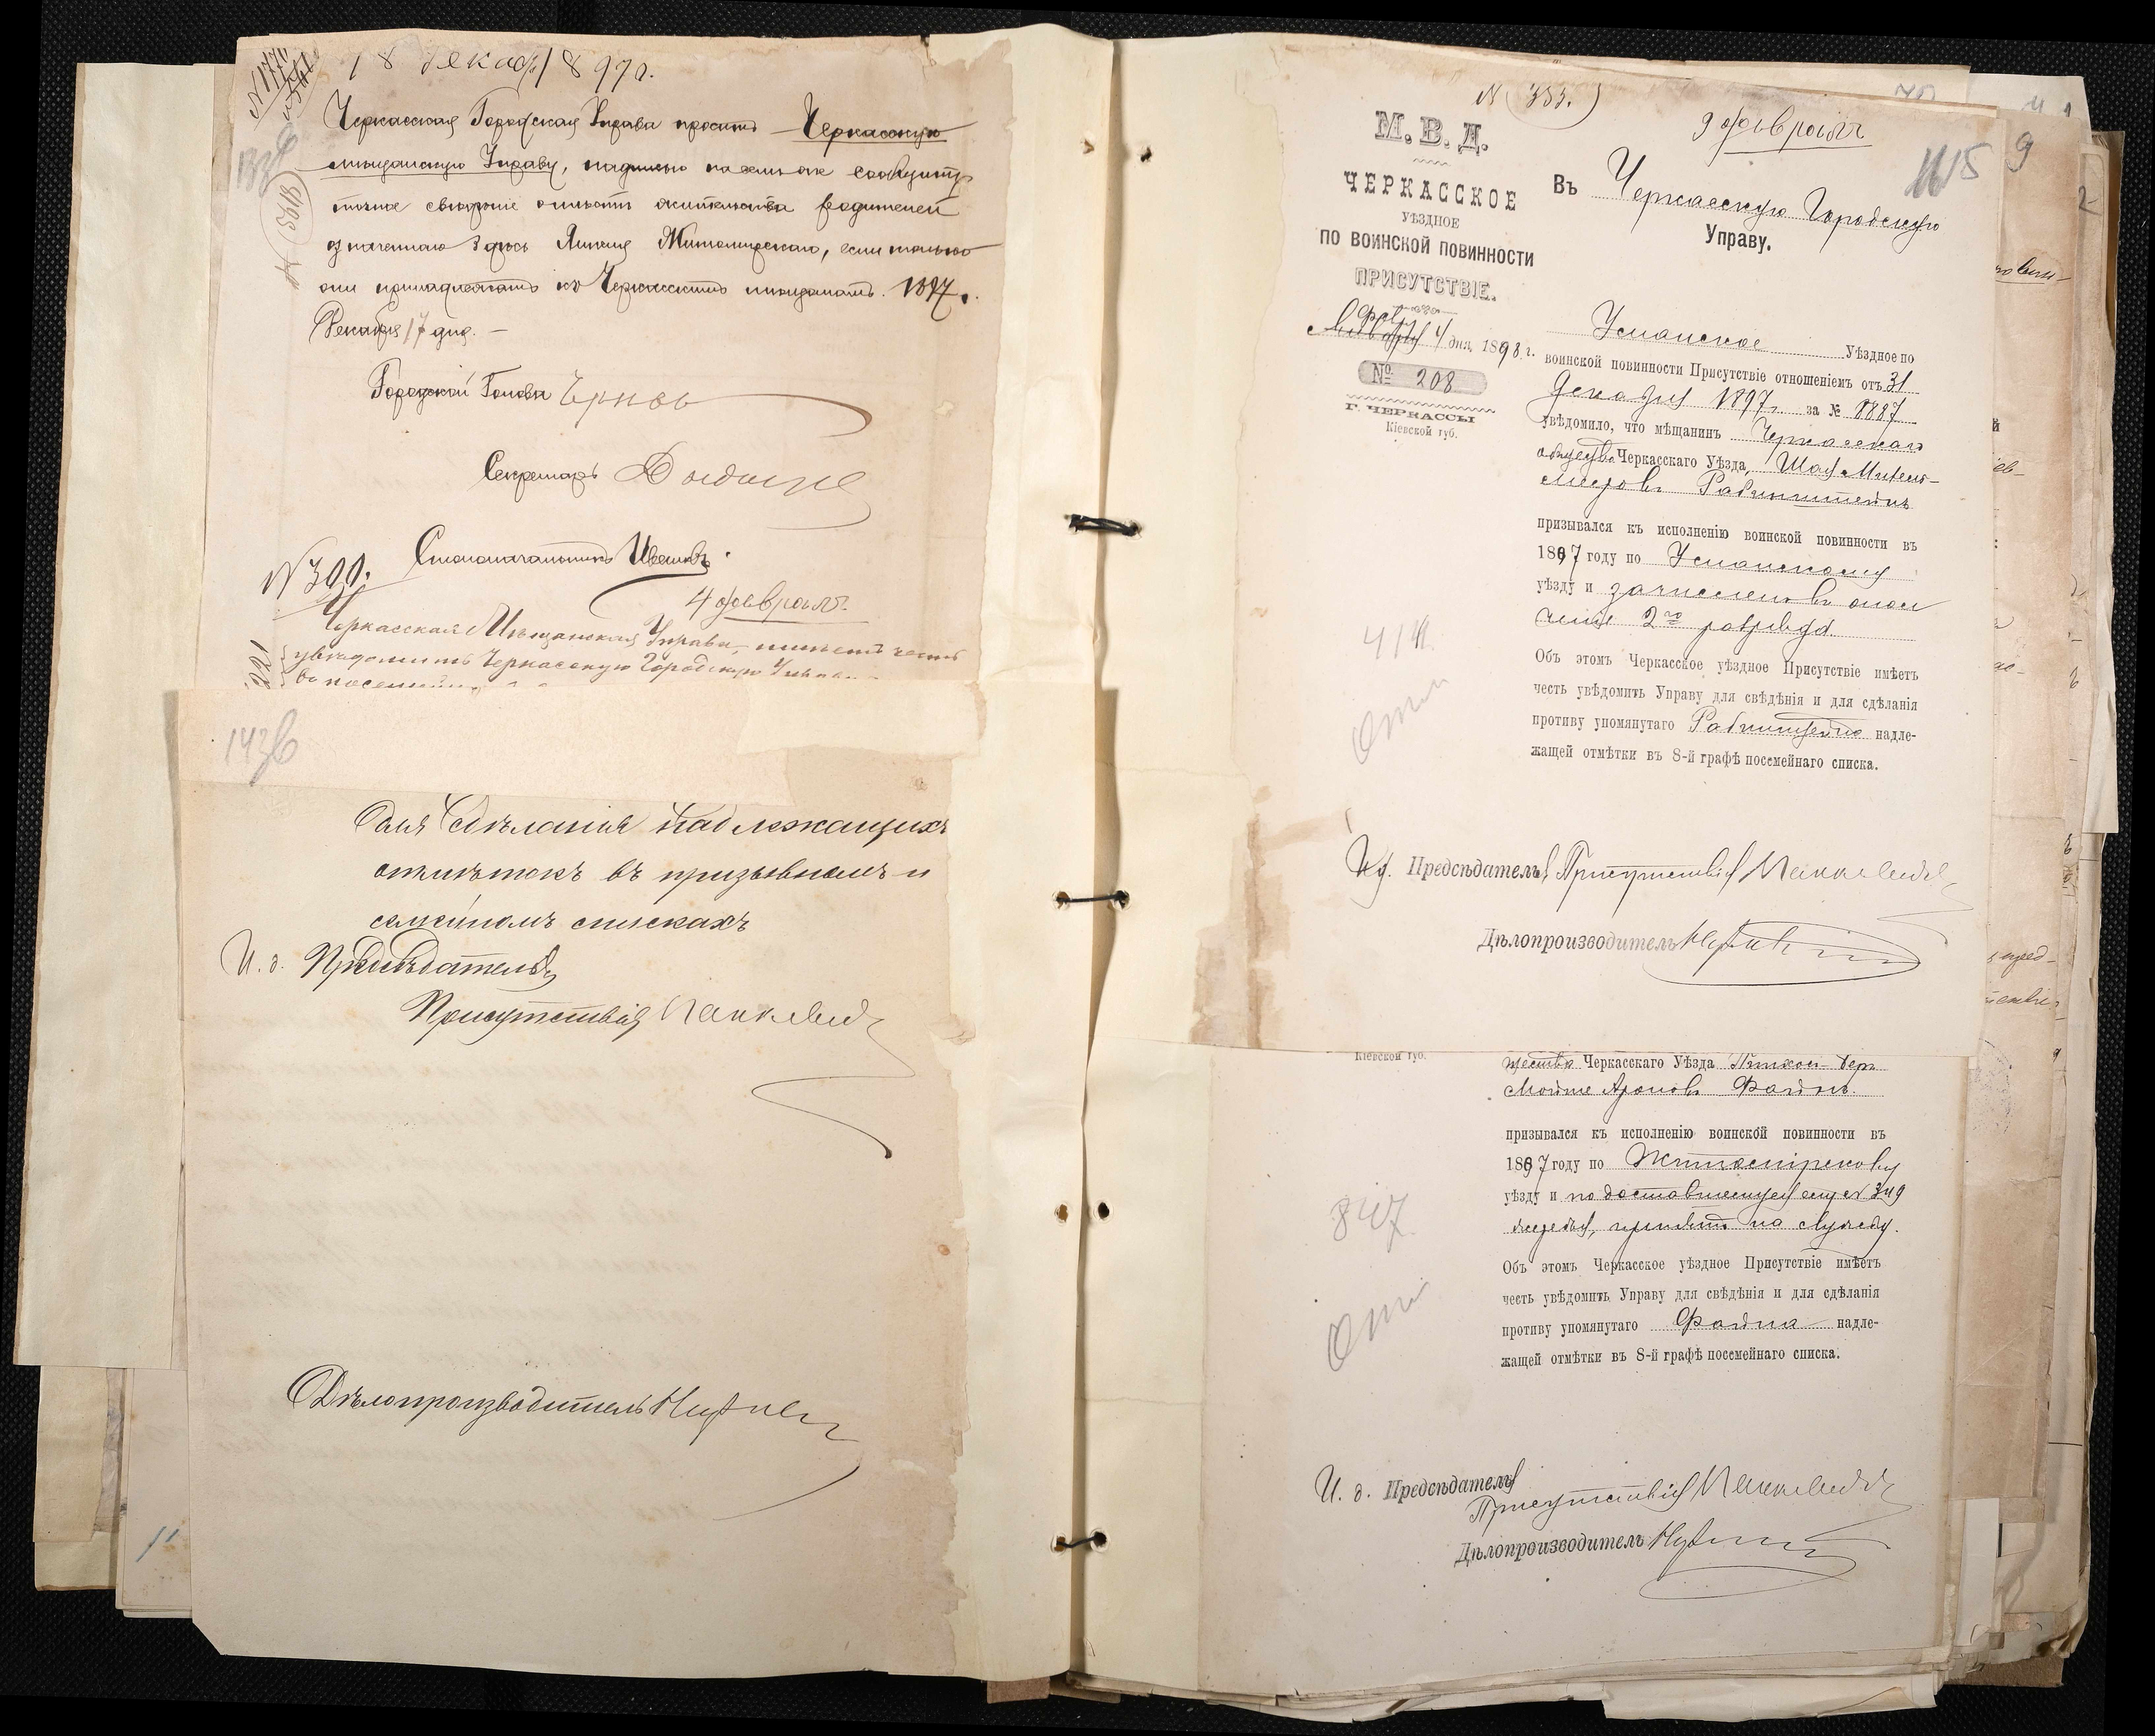 18 Декаб. 1897 г.
Черкасская Городская Управа проситъ Черкасскую
мѣщанскую Управу, надписью на семъ же сообщить
точное свѣдѣніе о мѣстѣ жительства родителей
означеннаго здѣсь Житомирскаго, если только
они принадлежатъ къ Черкасскимъ мѣщанамъ. 1897 г.
Декабря 17 дня.
Городской Голова
Секретарь
Столоначальникъ
N 300.
4 февраля
Черкасская Мѣщанская Управа, имѣетъ честь
увѣдомить Черкасскую Городскую Управу
143
Для сдѣланія надлежащихъ
отмѣтокъ въ призывномъ и
семейномъ спискахъ
И. д. Предсѣдателя
Присутствія
Дѣлопроизводитель
N 353.
9 февраля
115
М. В. Д.
ЧЕРКАССКОЕ
УѢЗДНОЕ
ПО ВОИНСКОЙ ПОВИННОСТИ
ПРИСУТСТВІЕ.
Фев.
Января 4 дня 1898 г.
№ 208
Г. ЧЕРКАССЫ
Кіевской губ.
Въ Черкасскую Городскую
Управу.
Уманское Уѣздное по
воинской повинности Присутствіе отношеніемъ отъ 31
Декабря 1897 г. за № 8887
увѣдомило, что мѣщанинъ Черкасскаго
общества Черкасскаго Уѣзда,
Рабинштейнъ
призывался къ исполненію воинской повинности въ
1897 году по Уманскому
уѣзду и зачисленъ въ ополченіе
2го разряда
Объ этомъ Черкасское уѣздное Присутствіе имѣетъ
честь увѣдомить Управу для свѣдѣнія и для сдѣланія
противу упомянутаго Рабинштейна надле-
жащей отмѣтки въ 8-й графѣ посемейнаго списка.
И. д. Предсѣдателя Присутствія
Дѣлопроизводитель
Кіевской губ.
щества Черкасскаго Уѣзда
Мошко Ароновъ Файнъ.
призывался къ исполненію воинской повинности въ
1897 году по Житомірскому
уѣзду и по доставшемуся ему № 349
жеребья, принятъ на службу.
Объ этомъ Черкасское уѣздное Присутствіе имѣетъ
честь увѣдомить Управу для свѣдѣнія и для сдѣланія
противу упомянутаго Файна надле-
жащей отмѣтки въ 8-й графѣ посемейнаго списка.
847
И. д. Предсѣдателя
Присутствія
Дѣлопроизводитель
9